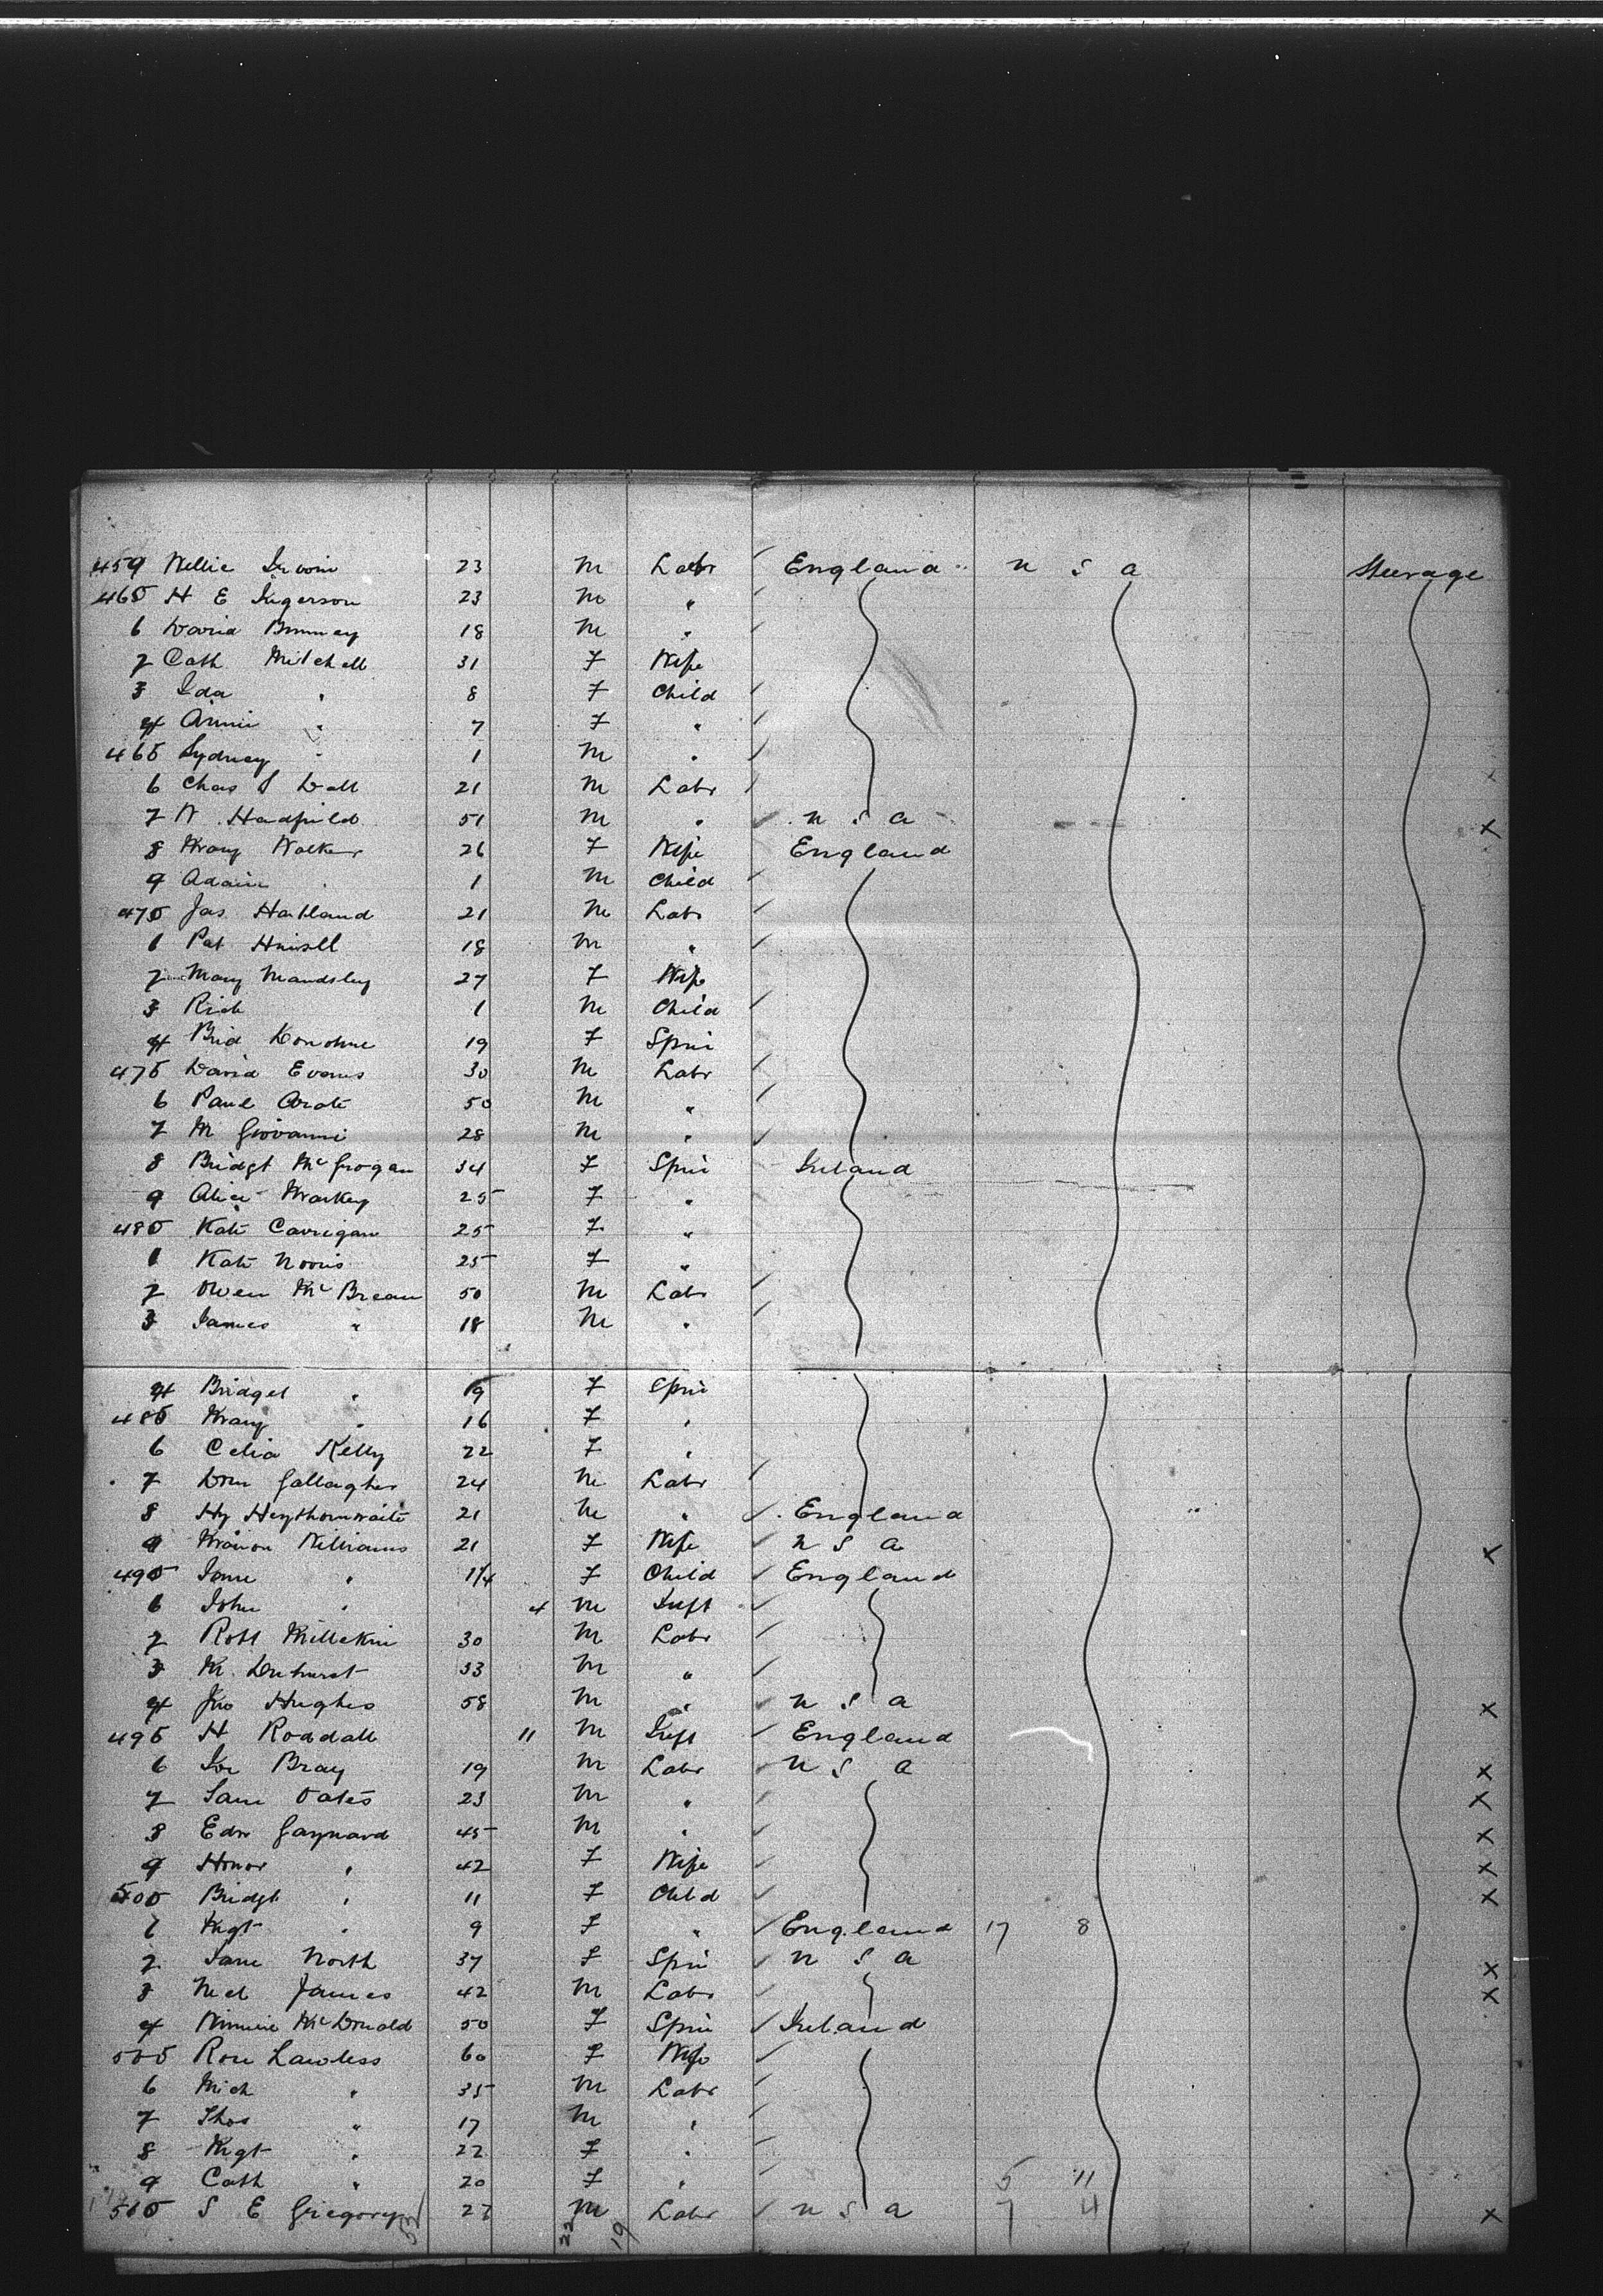 459 Nellie 23 M Labr England U S A Steerage
460 H E Ingerson 23 M "
1 David 18 M "
2 Cath Mitchell 31 F Wife
3 Ida " 8 F Child
4 Annie " 7 F "
465 Sydney " 1 M "
6 Chas S Wall 21 M Labr
7 W Hadfield 51 M " U S A X
8 Mary Walker 26 F Wife England
9 Adam " 1 M Child
470 Jas Hartland 21 M Labr
1 Pat 18 M "
2 Mary Mandsley 27 F Wife
3 Rich 1 M Child
4 Brid Donohue 19 F Spin
475 David Evans 30 M Labr
6 Paul 50 M "
7 M Giovanni 28 M "
8 Bridgt McGrogan 34 F Spin Ireland
9 Alice Markey 25 F "
480 Kate Carrigan 25 F "
1 Kate Norris 25 F "
2 Owen McBrean 50 M Labr
3 James " 18 M "
4 Bridget " 19 F Spin
485 Mary " 16 F "
6 Celia Kelly 22 F "
7 Dom Gallagher 24 M Labr
8 Hy Heythornwaite 21 M " England
9 Williams 21 F Wife U S A X
490 Jane " 1 1/4 F Child England
1 John " 4 M Inft
2 Robt Millekin 30 M Labr
3 M. 33 M "
4 Jno Hughes 58 M " U S A X
495 H Roddall 11 M Inft England
6 Bray 19 M Labr U S A X
7 Sam Oates 23 M " X
8 Edw Gaynard 45 M " X
9 Honor " 42 F Wife X
500 Bridgt " 11 F Child X
1 Mgt " 9 F " England 17 8
2 Jane North 37 F Spin U S A X
3 James 42 M Labr X
4 Minnie McDonald 50 F Spin Ireland
505 Rose Lawless 60 F Wife
6 Mich " 35 M Labr
7 Thos " 17 M "
8 Mgt " 22 F "
9 Cath " 20 F " 5 11
510 S E Gregory 27 M Labr U S A 7 4 X
53 22 19